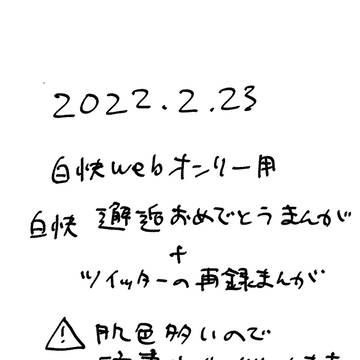 2022.2.23
白快webオンリー用
白快 邂逅おめでとうまんが
+
ツイッターの再録まんが
⚠肌色多いので